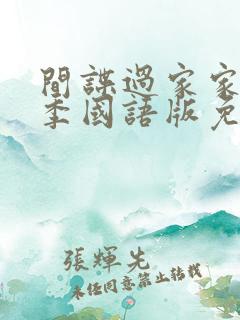 間諜過家家
季國語版免
張輝先
未任同意禁止转载